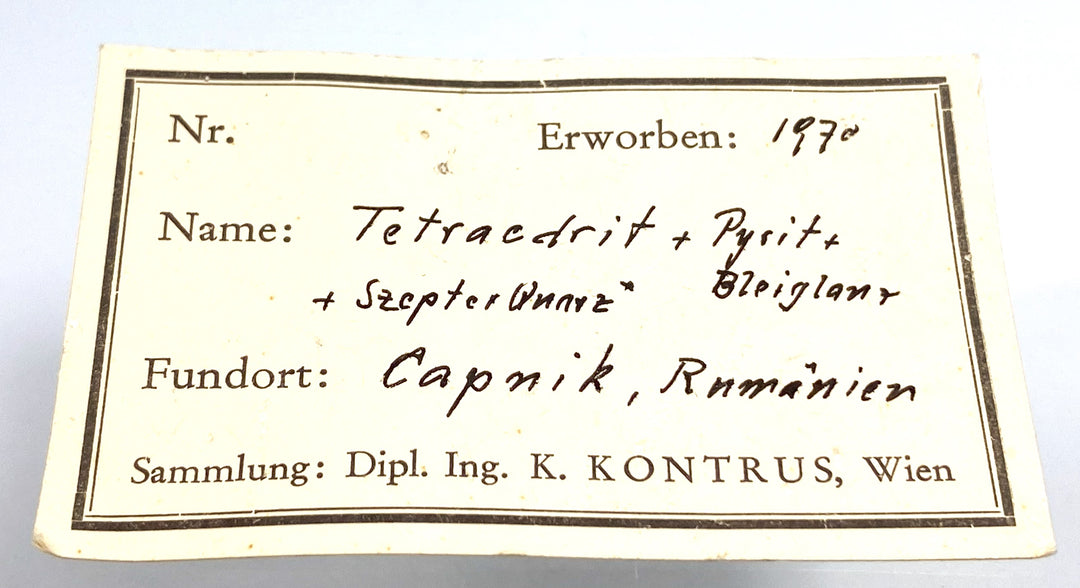 Nr. Erworben: 1970
Name: Tetraedrit + Pyrit +
+ SzepterQuarz" Bleiglanz
Fundort: Capnik, Rumänien
Sammlung: Dipl. Ing. K. KONTRUS, Wien